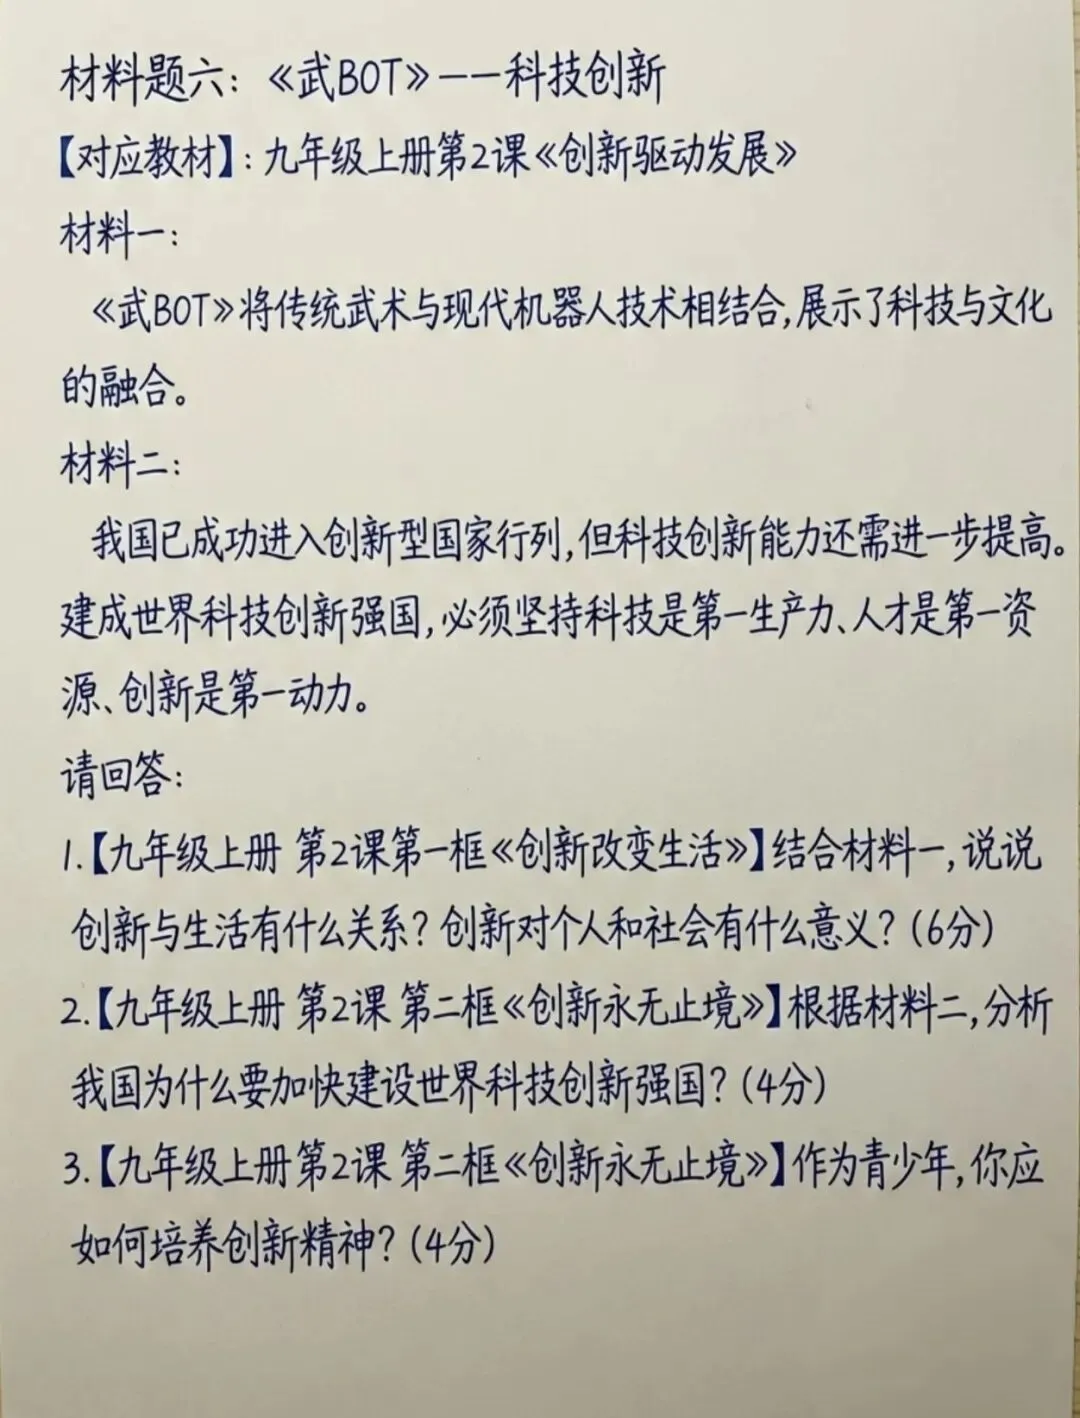 材料题六：《武BOT》——科技创新
【对应教材】：九年级上册第2课《创新驱动发展》
材料一：
《武BOT》将传统武术与现代机器人技术相结合，展示了科技与文化
的融合。
材料二：
我国已成功进入创新型国家行列，但科技创新能力还需进一步提高。
建成世界科技创新强国，必须坚持科技是第一生产力、人才是第一资
源、创新是第一动力。
请回答：
1.【九年级上册 第2课第一框《创新改变生活》】结合材料一，说说
创新与生活有什么关系？创新对个人和社会有什么意义？(6分)
2.【九年级上册 第2课 第二框《创新永无止境》】根据材料二，分析
我国为什么要加快建设世界科技创新强国？(4分)
3.【九年级上册第2课 第二框《创新永无止境》】作为青少年，你应
如何培养创新精神？(4分)